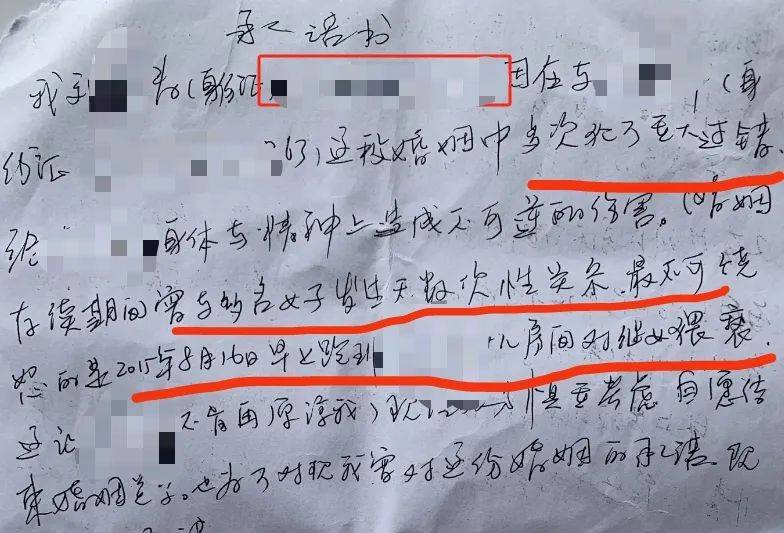 承诺书
我 刘 为(身份证 因在与 (身
份证 的)这段婚姻中多次犯了重大过错,
给 身体与精神上造成不可逆的伤害。(婚姻
存续期间曾与多名女子发生无数次性关系,最不可饶
恕的是2015年8月16日早上跑到 房间对继女猥亵.
这让 不肯再原谅我)现 慎重考虑自愿结
束婚姻关系。也为了对现我曾对这份婚姻的承诺.现